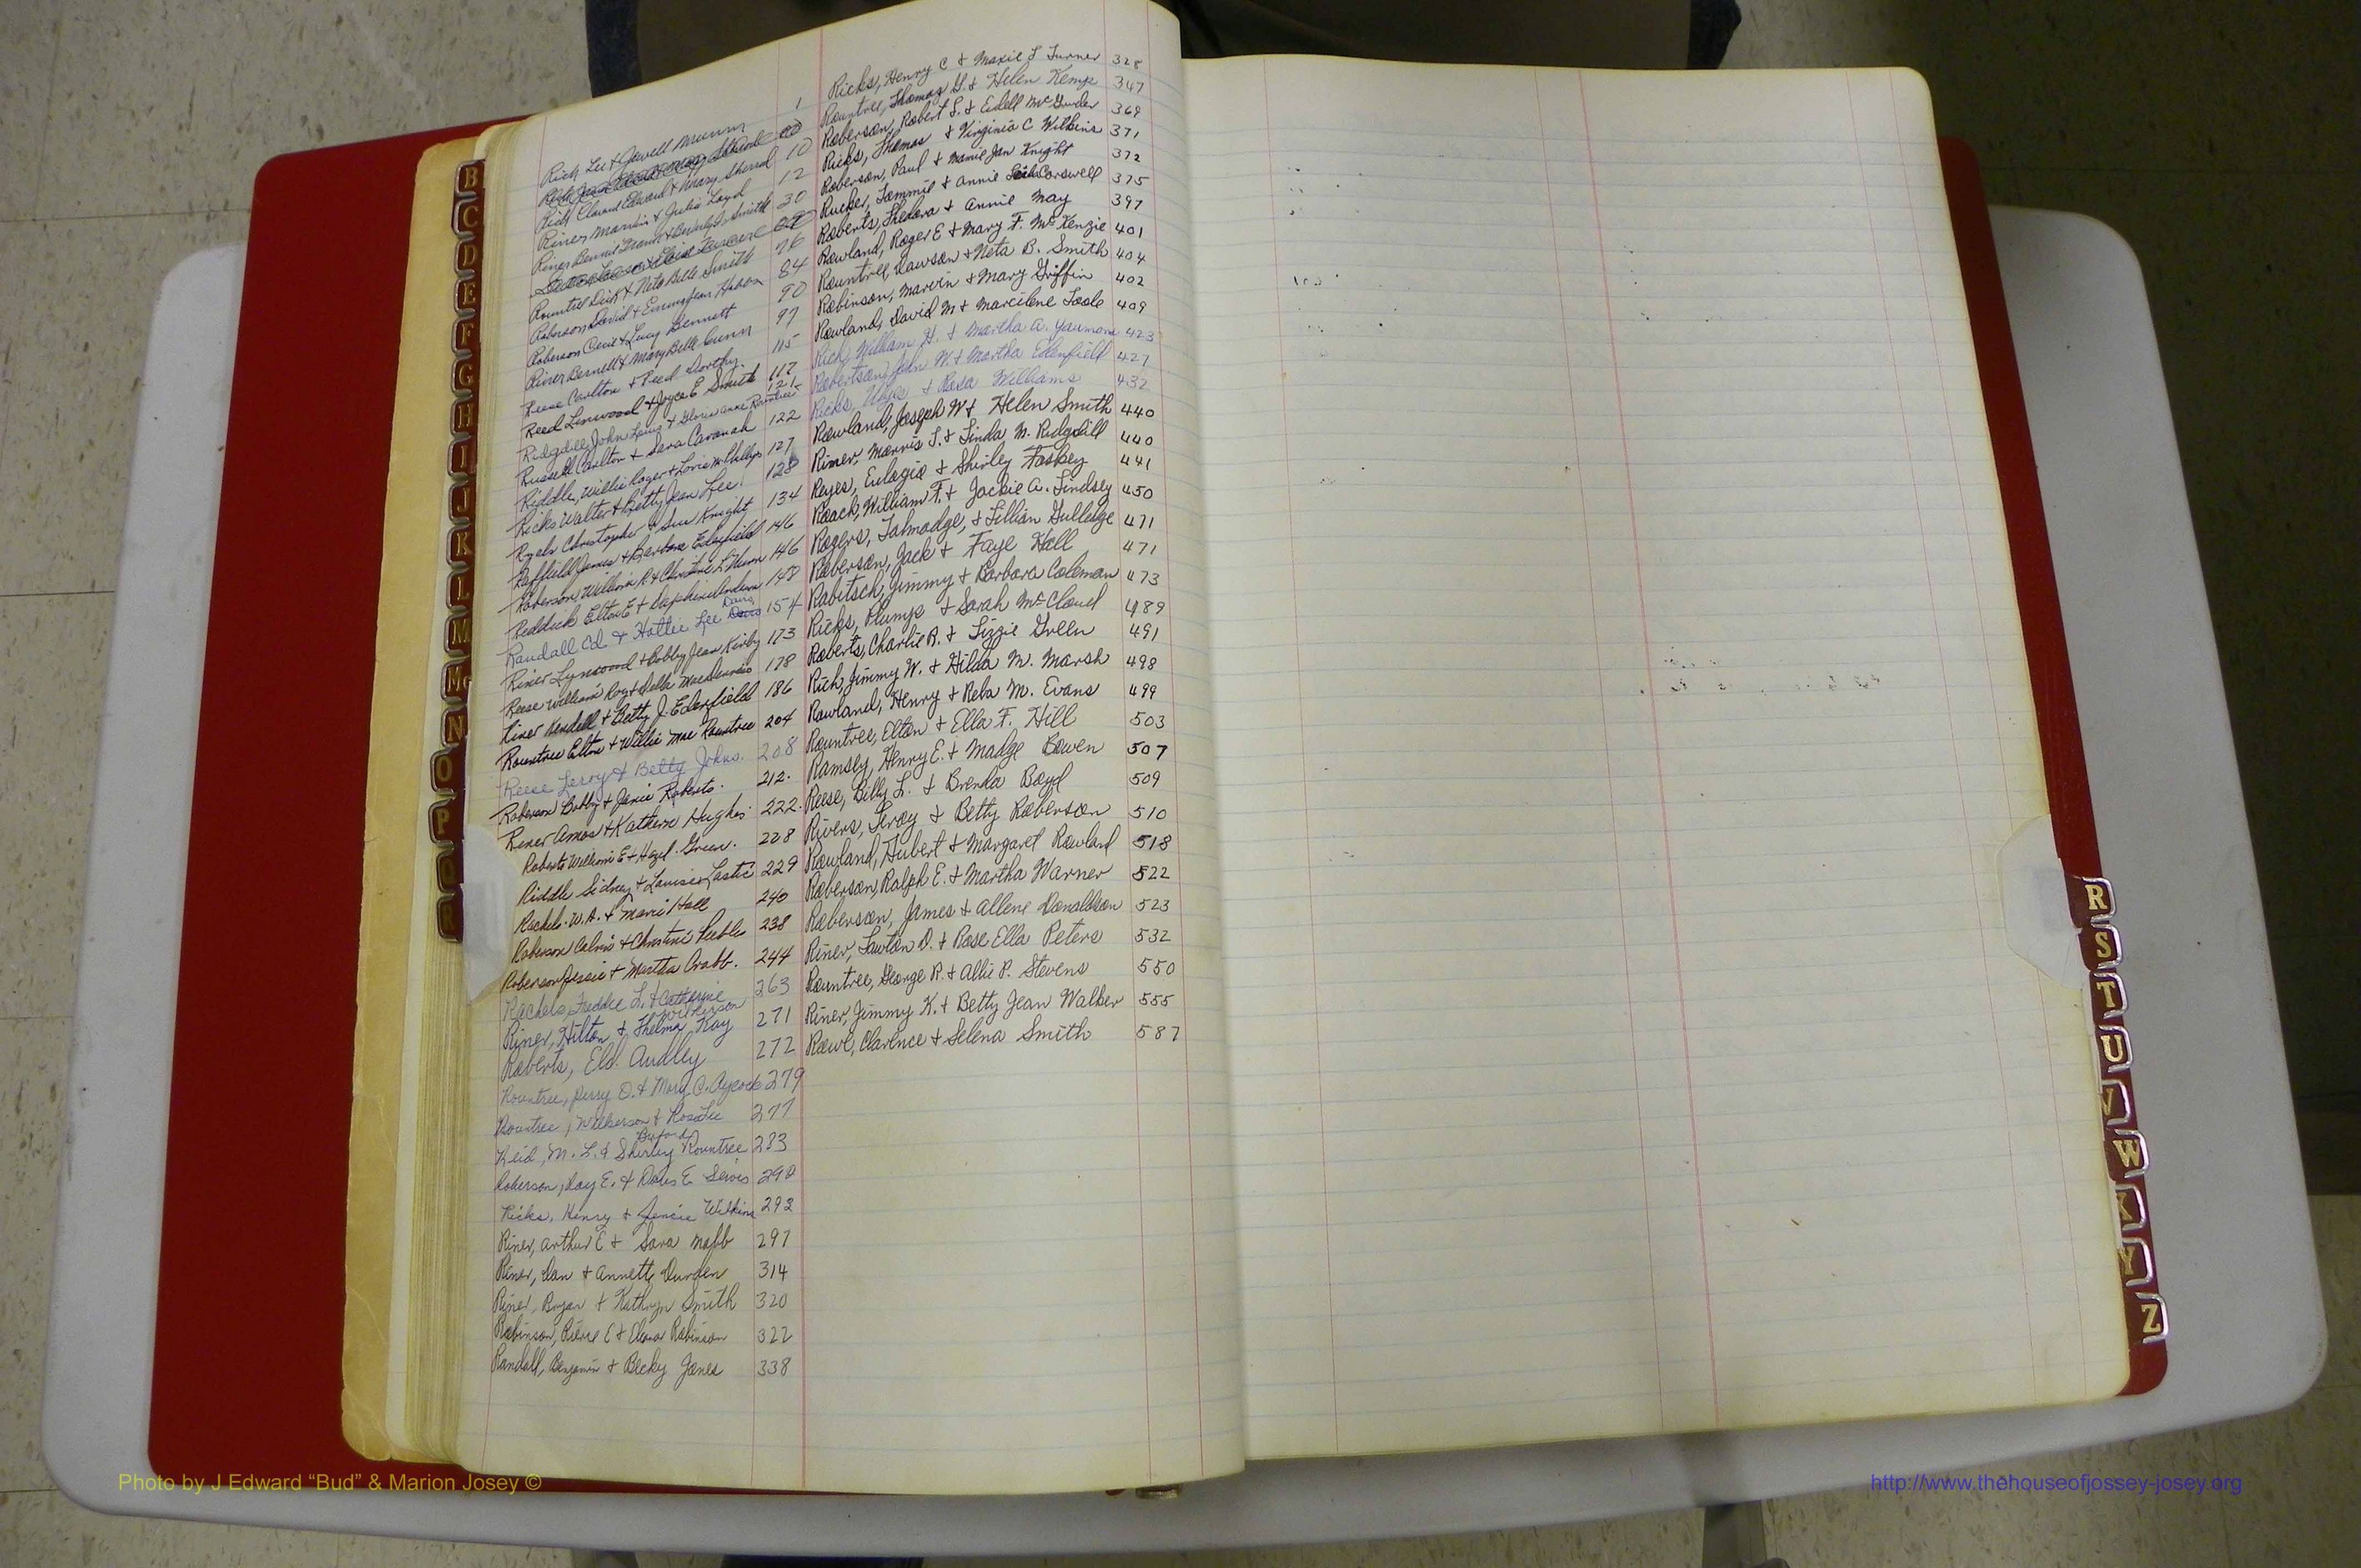 Rich Lee & Jewell Munn 1
Rich Edward & Mary Sherrod 10
Riner Marvin & Julia Loyd 12
Riner Bennie & Smith 30
Rountree Dick & Neta Belle Smith 76
Roberson David & Hobson 84
Roberson Cecil & Lucy Bennett 90
Riner Bernell & Mary Belle Gunn 97
Reese Carlton & Reed Dorothy 115
Reed Linwood & Joyce E Smith 117
Ridgdell John Louis & Gloria Anne Rountree 121
Russell Carlton & Sara Cavanah 122
Riddle, Willie Roger & Phillips 127
Ricks Walter & Betty Jean Lee 128
Ryals Christopher & Sue Knight 134
Raffield James & Barbara Edenfield 146
Roberson, William R & Christine 146
Reddick Elton E & 148
Randall Ed & Hattie Lee Davis 154
Riner Lynwood & Bobby Jean Kirby 173
Reese William Roy & Della Mae 178
Riner Kendall & Betty J. Edenfield 186
Rountree Elton & Willie Mae Rountree 204
Reese Leroy & Betty Johns. 208
Roberson Bobby & Janie Roberts. 212.
Riner Amos & Katherine Hughes 222.
Roberts William E & Hazel Green. 228
Riddle Sidney & Louise Lastie 229
Rachels W.A. & Marie Hall 240
Roberson Calvin & Christine Peebles 238
Roberson Jessie & Martha Crabb. 244
Rachels, Freddie L. & Catherine Wilkerson 263
Riner, Hilton & Thelma Kay 271
Roberts, Eld. Audlly 272
Rountree, Perry O. & Mary C. Aycock 279
Rountree, Wilkerson & Rosa Lee Buford 277
Reid, M. L. & Shirley Rountree 283
Roberson, Ray E. & Doris E. Lewis 290
Ricks, Henry & Jencie Wilkins 293
Riner, Arthur E & Sara Mobb 297
Riner, Dan & Annette Durden 314
Riner, Bryan & Kathryn Smith 320
Robinson, Pierre E & Robinson 322
Randall, Benjamin & Becky Jones 338
Ricks, Henry C & Maxie L Turner 328
Rountree, Thomas G. & Helen Kemp 347
Roberson, Robert L. & Eidell McGruder 369
Ricks, Thomas & Virginia C Wilkins 371
Roberson, Paul & Mamie Jan Knight 372
Rucker, Tommie & Annie Carswell 375
Roberts, Theldra & Annie May 397
Rowland, Roger E & Mary F. McKenzie 401
Rountree, Lawson & Neta B. Smith 404
Robinson, Marvin & Mary Griffin 402
Rowland, David M & Marcilene Toole 409
Rich, William H. & Martha A. Youmans 423
Robertson, John W. & Martha Edenfield 427
Ricks, & Rosa Williams 432
Rowland, Joseph W & Helen Smith 440
Rimer, Morris L. & Linda M. Ridgdill 440
Reyes, Eulogio & Shirley Foskey 441
Roach, William F. & Jackie A. Lindsey 450
Rogers, Talmadge, & Lillian Gulledge 471
Roberson, Jack & Faye Hall 471
Rabitsch, Jimmy & Barbara Coleman 473
Ricks, Plump & Sarah McCloud 489
Roberts, Charlie R. & Lizzie Green 491
Rich, Jimmy W. & Hilda M. Marsh 498
Rowland, Henry & Reba M. Evans 499
Rountree, Elton & Ella F. Hill 503
Ramsey, Henry E. & Madge Bowen 507
Reese, Billy L. & Brenda Boyd 509
Rivers, Leroy & Betty Roberson 510
Rowland, Hubert & Margaret Rowland 518
Roberson, Ralph E. & Martha Warner 522
Roberson, James & Allene Donaldson 523
Riner, Lawton D. & Rose Ella Peters 532
Rountree, George R. & Allie P. Stevens 550
Riner, Jimmy K. & Betty Jean Walker 555
Rowe, Clarence & Selena Smith 587
B
C
D
E
F
G
H
I
J
K
L
M
Mc
N
O
P
Q
R
R
S
T
U
V
W
X
Y
Z
Photo by J Edward “Bud” & Marion Josey ©
http://www.thehouseofjossey-josey.org